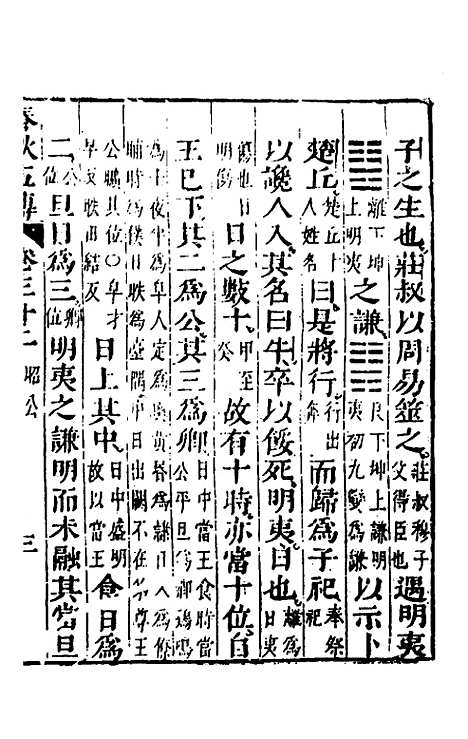 子之生也莊叔以周易筮之莊叔穆子父得臣也遇明夷
䷣離下坤上明夷之謙䷎艮下坤上謙明夷初九變爲謙以示卜
楚丘楚丘卜人姓名曰是將行行出奔而歸爲子祀奉祭祀
以讒人入其名曰牛卒以餒死明夷日也離爲日夷
傷也日明傷日之數十甲至癸故有十時亦當十位自
王已下其二爲公其三爲卿日中當王食時當公平旦爲卿鷄鳴
爲士夜半爲皁人定爲輿黃昏爲隸日入爲僚
晡時爲僕日昳爲臺隅中日出闕不在第尊王
公曠其位○皁才早反昳田結反日上其中日中盛明故以當王食日爲
二公位旦日爲三卿位明夷之謙明而未融其當旦
春秋五傳 卷三十二 昭公 三